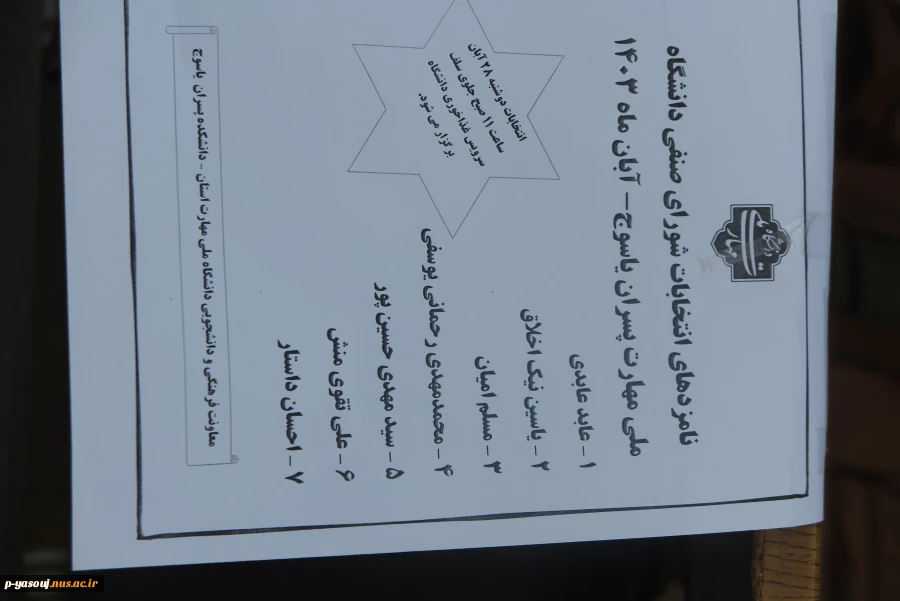 نامزدهای انتخابات شورای صنفی دانشگاه
ملی مهارت پسران یاسوج – آبان ماه ۱۴۰۳
۱ – عابد عابدی
۲ – یاسین نیک اخلاق
۳ – مسلم امیان
۴ – محمدمهدی رحمانی یوسفی
۵ – سید مهدی حسین پور
۶ – علی تقوی منش
۷ – احسان داستار
انتخابات دوشنبه ۲۸ آبان
ساعت ۱۱ صبح جلوی سلف
سرویس غذاخوری دانشگاه
برگزار می شود.
معاونت فرهنگی و دانشجویی دانشگاه ملی مهارت استان – دانشکده پسران یاسوج
p-yasouj.nus.ac.ir